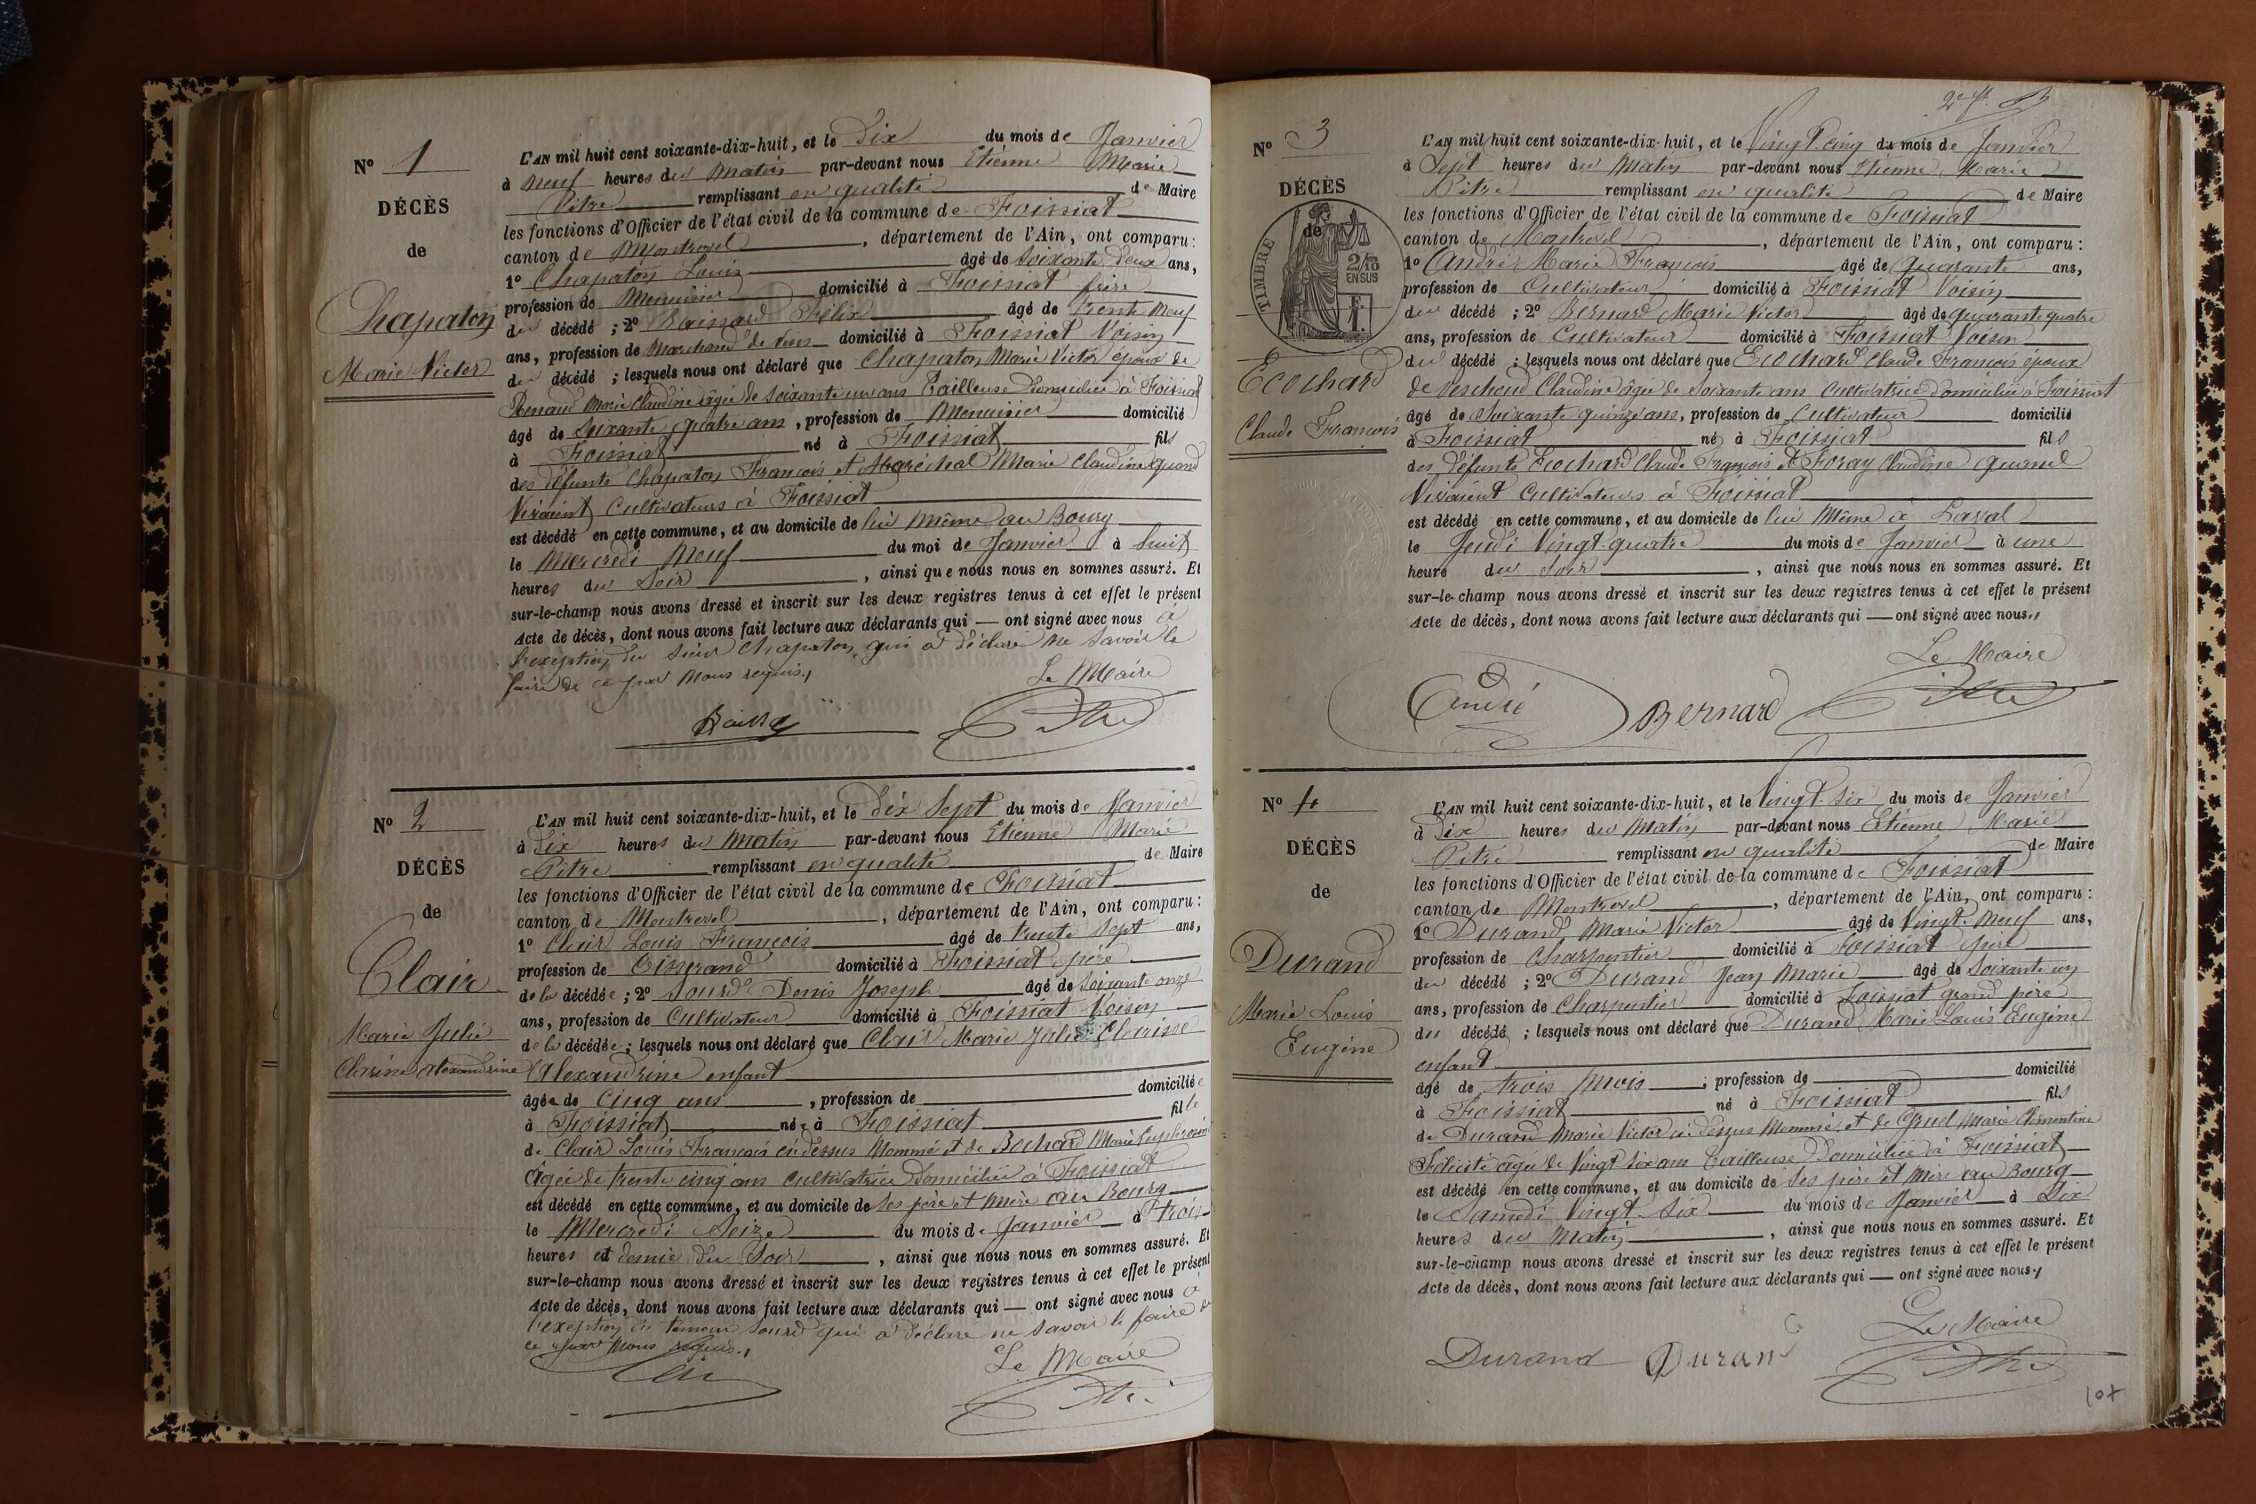 Nº 1
DÉCÈS
de
Chapaton
Marie Victor
L'AN mil huit cent soixante-dix-huit, et le Dix du mois de Janvier
à Neuf heures du Matin par-devant nous Etienne Marie
Pitre remplissant en qualité de Maire
les fonctions d'Officier de l'état civil de la commune de Foissiat
canton de Montrevel, département de l'Ain, ont comparu :
1º Chapaton Louis âgé de Soixante deux ans,
profession de Menuisier domicilié à Foissiat frère
du décédé ; 2º Félix âgé de Trente Neuf
ans, profession de Marchand de vins domicilié à Foissiat Voisin
du décédé ; lesquels nous ont déclaré que Chapaton Marie Victor époux de
Renaud Marie Claudine âgée de Soixante un ans Tailleuse domiciliée à Foissiat
âgé de Soixante quatre ans, profession de Menuisier domicilié
à Foissiat né à Foissiat fils
des défunts Chapaton François et Maréchal Marie Claudine quand
Vivaient Cultivateurs à Foissiat
est décédé en cette commune, et au domicile de lui Même au Bourg
le Mercredi Neuf du moi de Janvier à huit
heures du Soir, ainsi que nous nous en sommes assuré. Et
sur-le-champ nous avons dressé et inscrit sur les deux registres tenus à cet effet le présent
Acte de décès, dont nous avons fait lecture aux déclarants qui — ont signé avec nous à
l'exception du sieur Chapaton qui a déclaré ne savoir le
faire de ce par Nous requis.,
Le Maire
Pitre
Nº 2
DÉCÈS
de
Clair
Marie Julie
Clarisse Alexandrine
L'AN mil huit cent soixante-dix-huit, et le Dix Sept du mois de Janvier
à Dix heures du Matin par-devant nous Etienne Marie
Pitre remplissant en qualité de Maire
les fonctions d'Officier de l'état civil de la commune de Foissiat
canton de Montrevel, département de l'Ain, ont comparu :
1º Clair Louis François âgé de trente Sept ans,
profession de Tisserand domicilié à Foissiat père
de la décédée ; 2º Sourd Denis Joseph âgé de Soixante onze
ans, profession de Cultivateur domicilié à Foissiat Voisin
de la décédée ; lesquels nous ont déclaré que Clair Marie Julie Clarisse
Alexandrine enfant
âgée de Cinq ans, profession de domiciliée
à Foissiat née à Foissiat fille
de Clair Louis François ci dessus Nommé et de Bochard Marie Euphrosine
âgée de trente cinq ans Cultivatrice Domiciliée à Foissiat
est décédé en cette commune, et au domicile de Ses père et Mère au Bourg
le Mercredi Seize du mois de Janvier à trois
heures et demie du Soir, ainsi que nous nous en sommes assuré. Et
sur-le-champ nous avons dressé et inscrit sur les deux registres tenus à cet effet le présent
Acte de décès, dont nous avons fait lecture aux déclarants qui — ont signé avec nous à
l'exception du temoin Sourd qui a déclaré ne savoir le faire de
ce par Nous requis.,
Le Maire
Pitre
Nº 3
DÉCÈS
de
TIMBRE
2/10
EN SUS
Ecochard
Claude François
L'AN mil huit cent soixante-dix-huit, et le Vingt cinq du mois de Janvier
à Sept heures du Matin par-devant nous Etienne Marie
Pitre remplissant en qualité de Maire
les fonctions d'Officier de l'état civil de la commune de Foissiat
canton de Montrevel, département de l'Ain, ont comparu :
1º André Marie François âgé de Quarante ans,
profession de Cultivateur domicilié à Foissiat Voisin
du décédé ; 2º Bernard Marie Victor âgé de quarante quatre
ans, profession de Cultivateur domicilié à Foissiat Voisin
du décédé ; lesquels nous ont déclaré que Ecochard Claude François époux
de Claudine âgée de Soixante ans Cultivatrice domiciliée à Foissiat
âgé de Soixante quinze ans, profession de Cultivateur domicilié
à Foissiat né à Foissiat fils
des défunts Ecochard Claude François et Foray Claudine quand
Vivaient Cultivateurs à Foissiat
est décédé en cette commune, et au domicile de lui Même à Laval
le Jeudi Vingt-quatre du mois de Janvier à une
heure du Soir, ainsi que nous nous en sommes assuré. Et
sur-le-champ nous avons dressé et inscrit sur les deux registres tenus à cet effet le présent
Acte de décès, dont nous avons fait lecture aux déclarants qui — ont signé avec nous.,
Le Maire
André Bernard Pitre
Nº 4
DÉCÈS
de
Durand
Marie Louis
Eugène
L'AN mil huit cent soixante-dix-huit, et le Vingt Six du mois de Janvier
à Dix heures du Matin par-devant nous Etienne Marie
Pitre remplissant en qualité de Maire
les fonctions d'Officier de l'état civil de la commune de Foissiat
canton de Montrevel, département de l'Ain, ont comparu :
1º Durand Marie Victor âgé de Vingt-Neuf ans,
profession de Charpentier domicilié à Foissiat père
du décédé ; 2º Durand Jean Marie âgé de Soixante un
ans, profession de Charpentier domicilié à Foissiat grand père
du décédé ; lesquels nous ont déclaré que Durand Marie Louis Eugène
enfant
âgé de trois Mois ; profession de domicilié
à Foissiat né à Foissiat fils
de Durand Marie Victor ci dessus Nommé et de Marie Clémentine
Félicité âgée de Vingt Six ans Tailleuse Domiciliée à Foissiat
est décédé en cette commune, et au domicile de Ses père et Mère au Bourg
le Samedi Vingt-Six du mois de Janvier à Dix
heures du Matin, ainsi que nous nous en sommes assuré. Et
sur-le-champ nous avons dressé et inscrit sur les deux registres tenus à cet effet le présent
Acte de décès, dont nous avons fait lecture aux déclarants qui — ont signé avec nous.,
Le Maire
Durand Durand Pitre